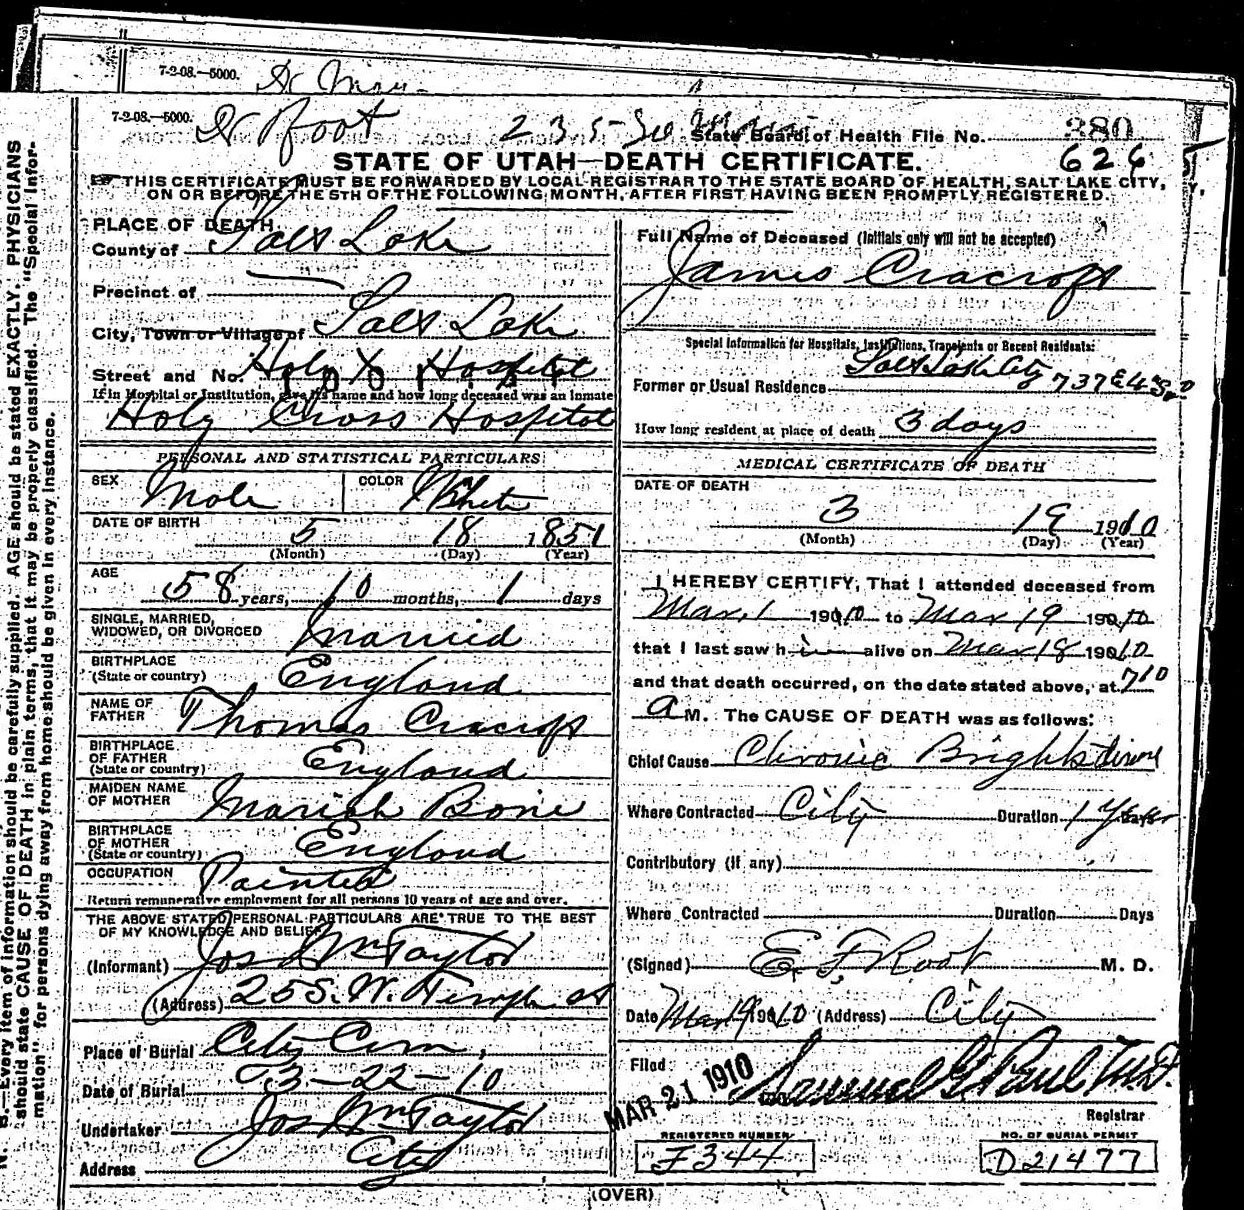 7-2-08.—5000.
7-2-08.—5000. Dr Root 235 So Main State Board of Health File No. 380
626
STATE OF UTAH—DEATH CERTIFICATE.
THIS CERTIFICATE MUST BE FORWARDED BY LOCAL REGISTRAR TO THE STATE BOARD OF HEALTH, SALT LAKE CITY,
ON OR BEFORE THE 5TH OF THE FOLLOWING MONTH, AFTER FIRST HAVING BEEN PROMPTLY REGISTERED.
N. B.—Every item of information should be carefully supplied. AGE should be stated EXACTLY. PHYSICIANS
should state CAUSE OF DEATH in plain terms, that it may be properly classified. The "Special Infor-
mation" for persons dying away from home should be given in every instance.
PLACE OF DEATH
County of Salt Lake
Precinct of
City, Town or Village of Salt Lake
Street and No. Holy X Hospital
If in Hospital or Institution, give its name and how long deceased was an inmate
Holy Cross Hospital
PERSONAL AND STATISTICAL PARTICULARS
SEX Male COLOR White
DATE OF BIRTH 5 18 1851
(Month) (Day) (Year)
AGE 58 years, 10 months, 1 days
SINGLE, MARRIED,
WIDOWED, OR DIVORCED Married
BIRTHPLACE
(State or country) England
NAME OF
FATHER Thomas Cracroft
BIRTHPLACE
OF FATHER
(State or country) England
MAIDEN NAME
OF MOTHER Mariah Bone
BIRTHPLACE
OF MOTHER
(State or country) England
OCCUPATION Painter
Return remunerative employment for all persons 10 years of age and over.
THE ABOVE STATED PERSONAL PARTICULARS ARE TRUE TO THE BEST
OF MY KNOWLEDGE AND BELIEF
(Informant) Jos Wm Taylor
(Address) 25 S. W. Temple st
Place of Burial City Cem,
Date of Burial 3-22-10
Undertaker Jos Wm Taylor
Address City
Full Name of Deceased (Initials only will not be accepted)
James Cracroft
Special Information for Hospitals, Institutions, Transients or Recent Residents:
Former or Usual Residence Salt Lake City 737 E 4" So
How long resident at place of death 3 days
MEDICAL CERTIFICATE OF DEATH
DATE OF DEATH
3 19 1910
(Month) (Day) (Year)
I HEREBY CERTIFY, That I attended deceased from
Mar, 1 1910 to Mar 19 1910
that I last saw h i alive on Mar 18 1910
and that death occurred, on the date stated above, at 7 10
A M. The CAUSE OF DEATH was as follows:
Chief Cause Chronic Brights disease
Where Contracted City Duration 1 Year
Contributory (if any)
Where Contracted Duration Days
(Signed) E. F. Root M. D.
Date Mar 19 1910 (Address) City
Filed MAR 21 1910 Samuel G. Paul M.D.
Registrar
REGISTERED NUMBER NO. OF BURIAL PERMIT
F344 D21477
(OVER)